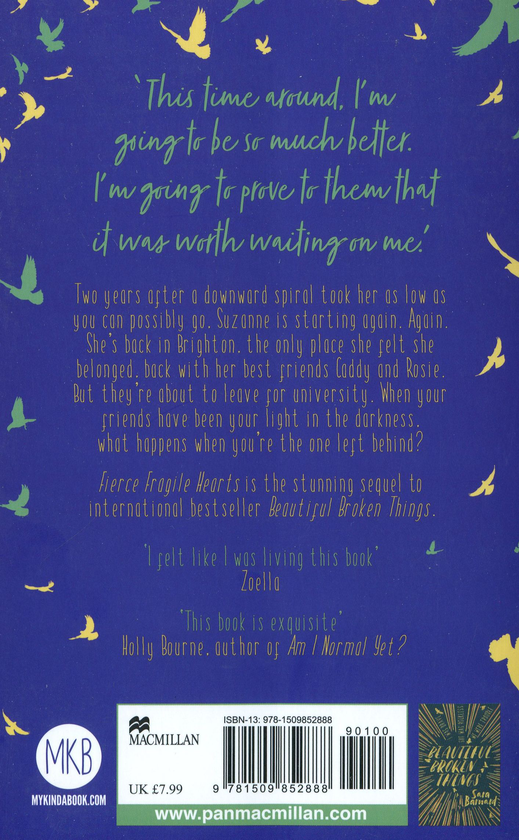 'This time around, I'm
going to be so much better.
I'm going to prove to them that
it was worth waiting on me.'
Two years after a downward spiral took her as low as
you can possibly go, Suzanne is starting again. Again.
She's back in Brighton, the only place she felt she
belonged, back with her best friends Caddy and Rosie.
But they're about to leave for university. When your
friends have been your light in the darkness,
what happens when you're the one left behind?
Fierce Fragile Hearts is the stunning sequel to
international bestseller Beautiful Broken Things.
"I felt like I was living this book"
Zoella
"This book is exquisite"
Holly Bourne, author of Am I Normal Yet?
MKB
MYKINDABOOK.COM
MACMILLAN
UK £7.99
ISBN-13: 978-1509852888
90100
9 781509 852888
www.panmacmillan.com
BEAUTIFUL
BROKEN
THINGS
Sara
Barnard